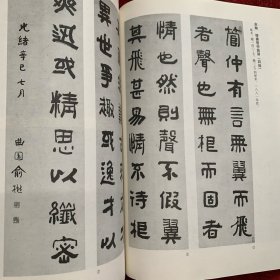 管仲有言無翼而飛
者聲也無根而固者
情也然則聲不假翼
其飛甚易情不待根
異世爭趣或逸才以
爽迅或精思以纖密
光緒辛巳七月
曲園俞樾